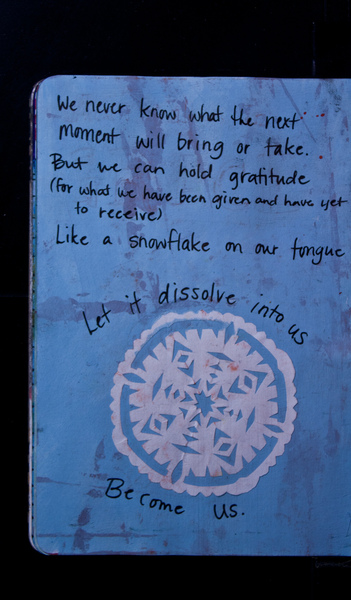 We never know what the next
moment will bring or take.
But we can hold gratitude
(for what we have been given and have yet
to receive)
Like a snowflake on our tongue
Let it dissolve into us
Become us.